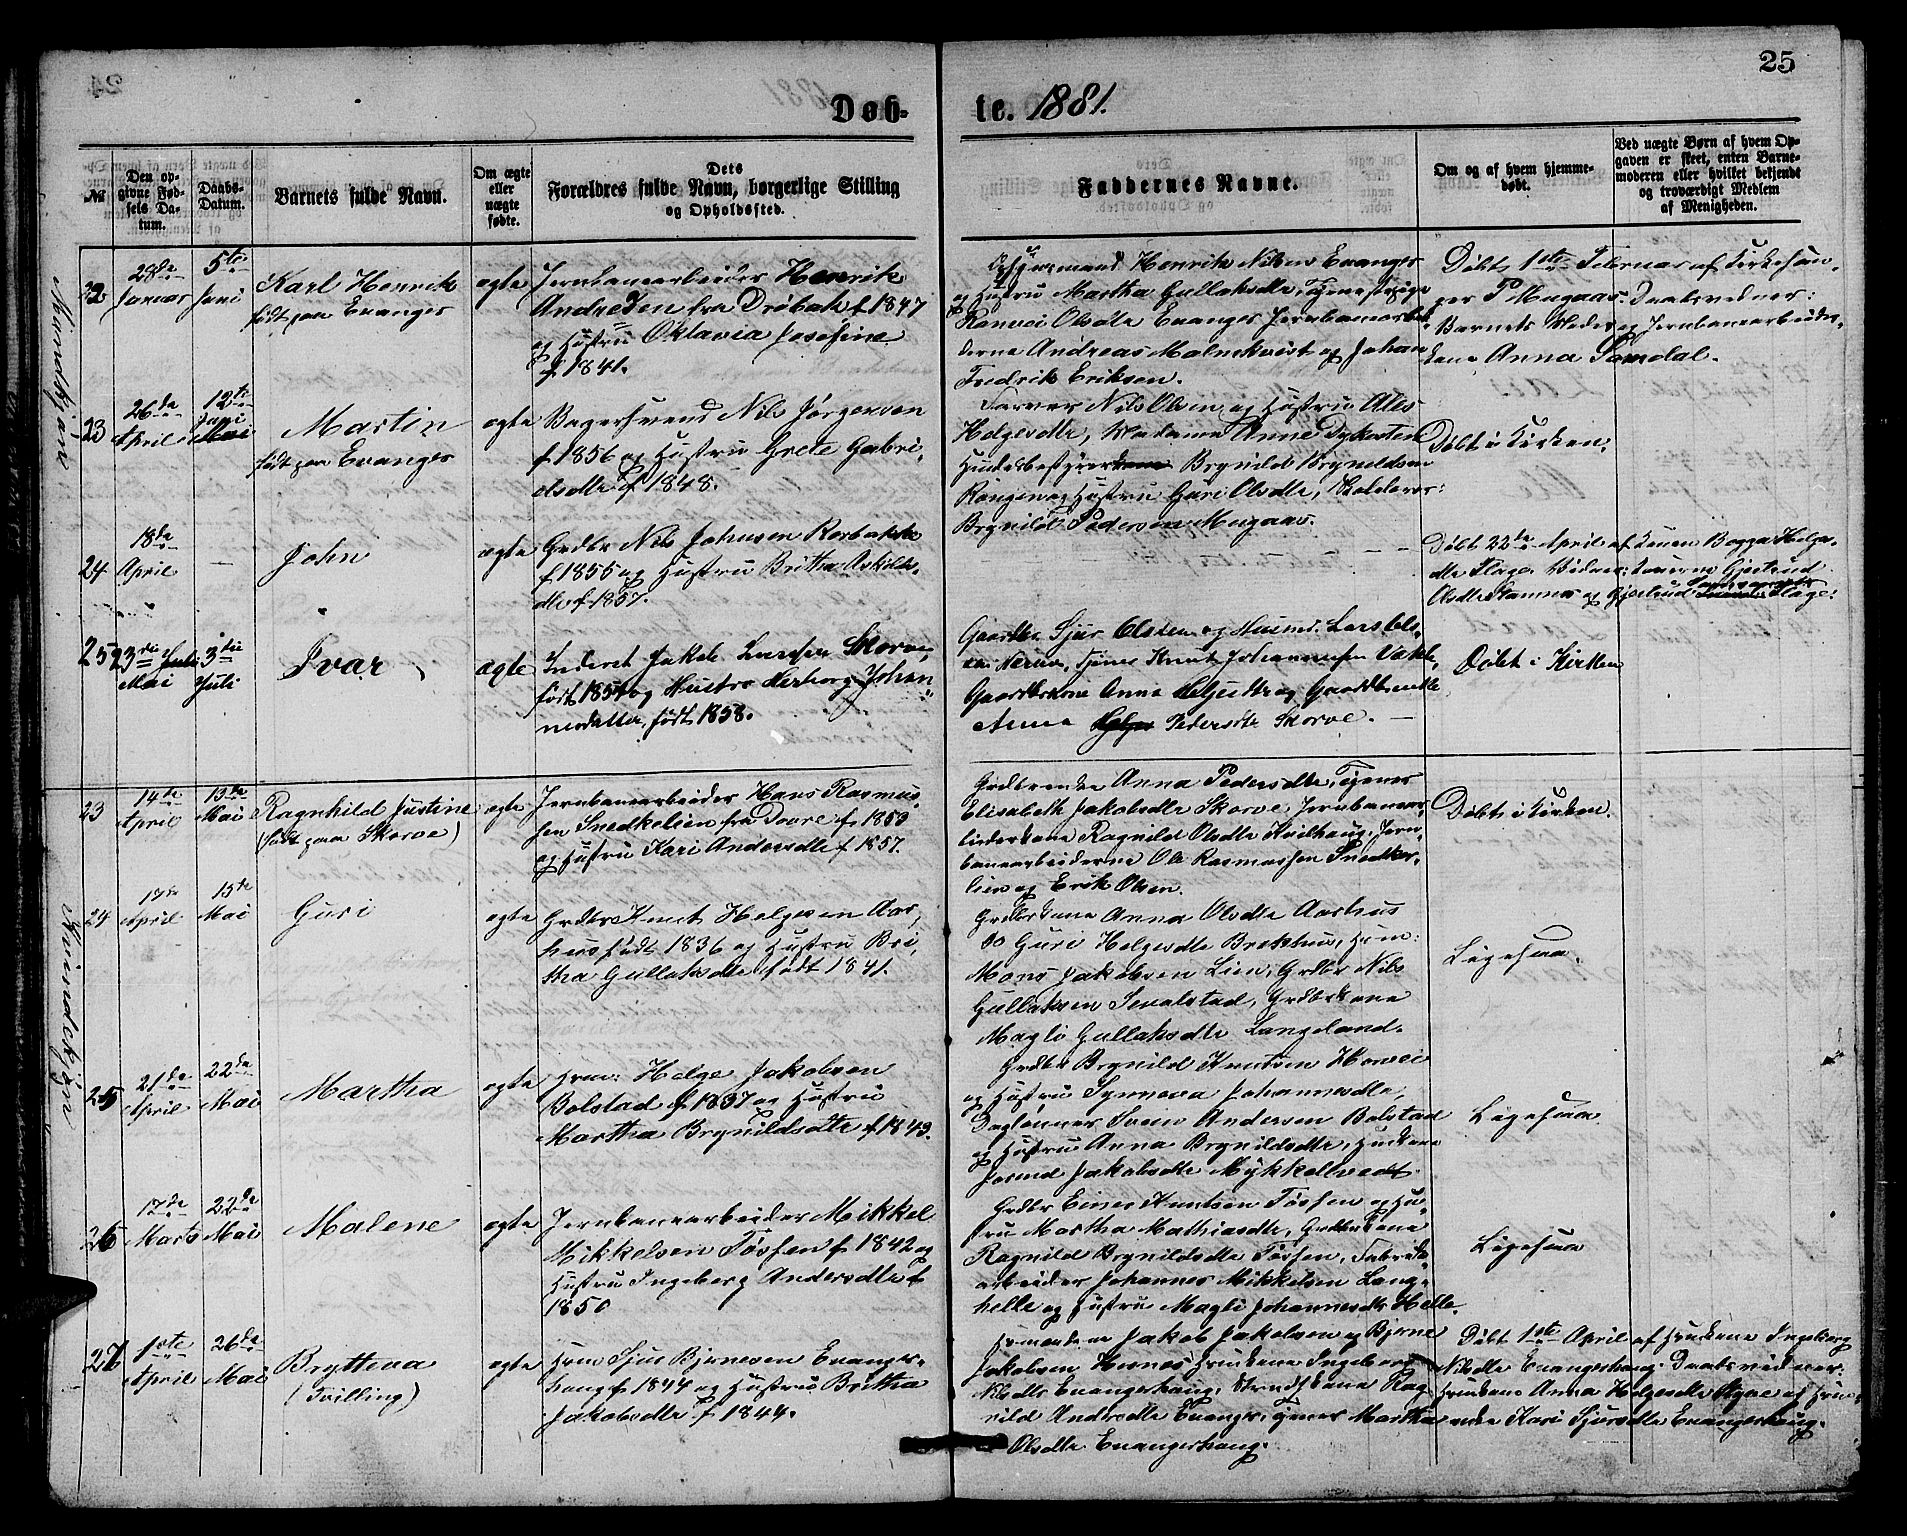 25
Døb-
te. 1881.
№
Den op-
givne Fød-
sels Da-
tum.
Daabs-
Datum.
Barnets fulde Navn.
Om ægte
eller
uægte
fødte.
Dets
Forældres fulde Navn, borgerlige Stilling
og Opholdssted.
Faddernes Navne.
Om og af hvem hjemme-
døbt.
Ved uægte Børn af hvem Op-
gaven er skeet, enten Barne-
moderen eller hvilket bekjendt
og troværdigt Medlem
af Menigheden.
Mandkjøn
22
28de
Januar
5te
Juni
Karl Henrik
født paa Evanger
ægte
Jernbanearbeider Henrik
Andresen fra Drøbak f 1847
og Hustru Oktavia Josefine
f 1841.
Henrik Nilsen Evanger
og Hustru Martha Gullaksdtr, Tjenestepige
Ranvei Olsdtr Evanger Jernbanearbei-
derne Andreas Malmkvist og Johan
Fredrik Eriksen.
Døbt 1ste Februar af Kirkesan-
ger P Mugaas. Daabsvidner:
Barnets Moder og Jernbanearbeider-
kone Anna Samdal.
23
26de
April
12te
Juni
Mai
Martin
født paa Evanger
ægte
Bagersvend Nils Jørgensen
f 1856 og Hustru Grete Gabri-
elsdtr f 1848.
Farver Nils Olsen og Hustru Ales
Helgesdtr, Madame Anne Dyksten
Brynild Brynildsen
og Hustru Guri Olsdtr, Skolelærer
Brynild Pedersen Mugaas.
Døbt i Kirken.
24
18de
April
—
John
ægte
Grdbr Nils Johnsen Rasbakke
f 1855 og Hustru Britha Askilds-
dtr f 1857.
Døbt 22de April af Konen Bagga Helge-
dtr Flage. Vidner: Konerne Gjertrud
Olsdtr Stamnes og Gjertrud Flage.
25
23de Juli
Mai
3die
Juli
Ivar
ægte
Inderst Jakob Larssen Skorve,
født 1854 og Hustro Herborg Johan-
nesdatter, født 1858.
Gaardbr. Sjur Olsen og Husmd. Lars Ols-
Knut Johannessen
Gaardbrkone Anna og Gaardbrenke
Anna Pedersdtr Skorve. —
Døbt i Kirken
Kvindekjøn
23
14de
April
15de
Mai
Ragnhild Justine
(født paa Skorve)
ægte
Jernbanearbeider Hans Rasmus-
sen Snedkelien fra Dovre f 1850
og Hustru Kari Andersdtr f 1857.
Grdbrenke Anna Pedersdtr, Tjener
Elisabeth Jakobsdtr Skorve, Jernbanear-
beiderkone Ragnild Olsdtr Kvilhaug, Jern-
banearbeiderne Ole Rasmussen Snedker-
lien og Erik Olsen.
Døbt i Kirken.
24
17de
April
15te
Mai
Guri
ægte
Grdbr Knut Helgesen Aar-
hus født 1836 og Hustru Bri-
tha Gullaksdtr født 1841.
Grdbrkone Anna Olsdtr Aarhus
Do Guri Helgesdtr Brekhus, Husm:
Mons Jakobsen Lien, Grdbr Nils
Gullaksen Sevalstad, Grdbrkone
Magli Gullaksdtr Langeland.
Ligesaa.
25
21de
April
22de
Mai
Martha
ægte
Husm: Helge Jakobsen
Bolstad f 1837 og Hustru
Martha Brynildsdtr f 1843.
Grdbr Brynild Knutsen Horvei
og Hustru Synneva Johannesdtr,
Daglønner Svein Andersen Bolstad
og Hustru Anna Brynildsdtr, Huskone
Jorund Jakobsdtr Mykkeltvedt.
Ligesaa.
26
17de
Marts
22de
Mai
Malene
ægte
Jernbanearbeider Mikkel
Mikkelsen Tøssen f 1842 og
Hustru Ingeborg Andersdtr f
1850
Grdbr Einer Knutsen Tøssen og Hu-
stru Martha Mathiasdtr, Grdbrkone
Ragnild Brynildsdtr Tøssen, Fabrik-
arbeider Johannes Mikkelsen Lang-
helle og Hustru Magli Johannesdtr Helle.
Ligesaa
27
1ste
April
26de
Mai
Brytteva
(Tvilling)
ægte
Husm Sjur Bjørnesen Evanger-
haug f 1844 og Hustru Britha
Jakobsdtr f 1844.
Husmændene Jakob Jakobsen og Bjørne
Jakobsen Huskone Ingeborg
Nilsdtr Evangerhaug, Rag-
nild Andersdtr Evanger, Tjener Martha
Olsdtr Evangerhaug.
Døbt 1ste April af Huskone Ingeborg
Nilsdtr Evangerhaug. Daabsvidner:
Huskone Anna Helgesdtr
Kari Sjursdtr Evangerhaug.